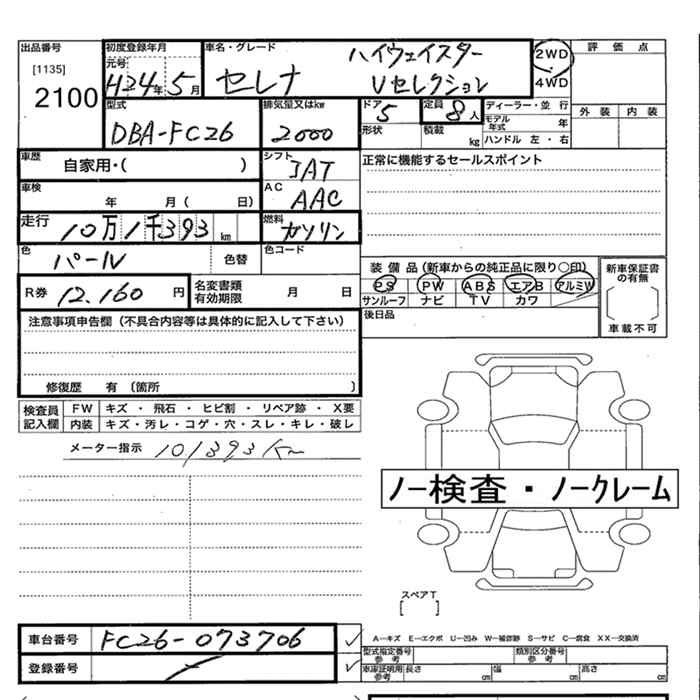 出品番号
[1135]
2100
初度登録年月
元号
H24年5月
車名・グレード
セレナ
ハイウェイスター
Vセレクション
2WD
4WD
評価点
外装 内装
型式
DBA-FC26
排気量又はkw
2000
ドア
5
定員
8人
形状
積載
kg
ディーラー・並行
モデル年式
年
ハンドル 左・右
車歴
自家用・( )
シフト
IAT
正常に機能するセールスポイント
車検
年 月( 日)
AC
AAC
走行
10万1千393km
燃料
ガソリン
色
パール
色替
色コード
装備品(新車からの純正品に限り○印)
PS PW ABS エアB アルミW
サンルーフ ナビ TV カワ
新車保証書の有無
車載不可
R券
12,160円
名変書類有効期限
月 日
後日品
注意事項申告欄(不具合内容等は具体的に記入して下さい)
修復歴 有〔箇所 〕
検査員記入欄
FW キズ・飛石・ヒビ割・リペア跡・X要
内装 キズ・汚レ・コゲ・穴・スレ・キレ・破レ
メーター指示 101393Km
ノー検査・ノークレーム
スペアT
[ ]
車台番号
FC26-073706
登録番号
A―キズ E―エクボ U―凹み W―補修跡 S―サビ C―腐食 XX―交換済
型式指定番号
参考
類別区分番号
参考
車庫証明用
参考
長さ
cm
幅
cm
高さ
cm